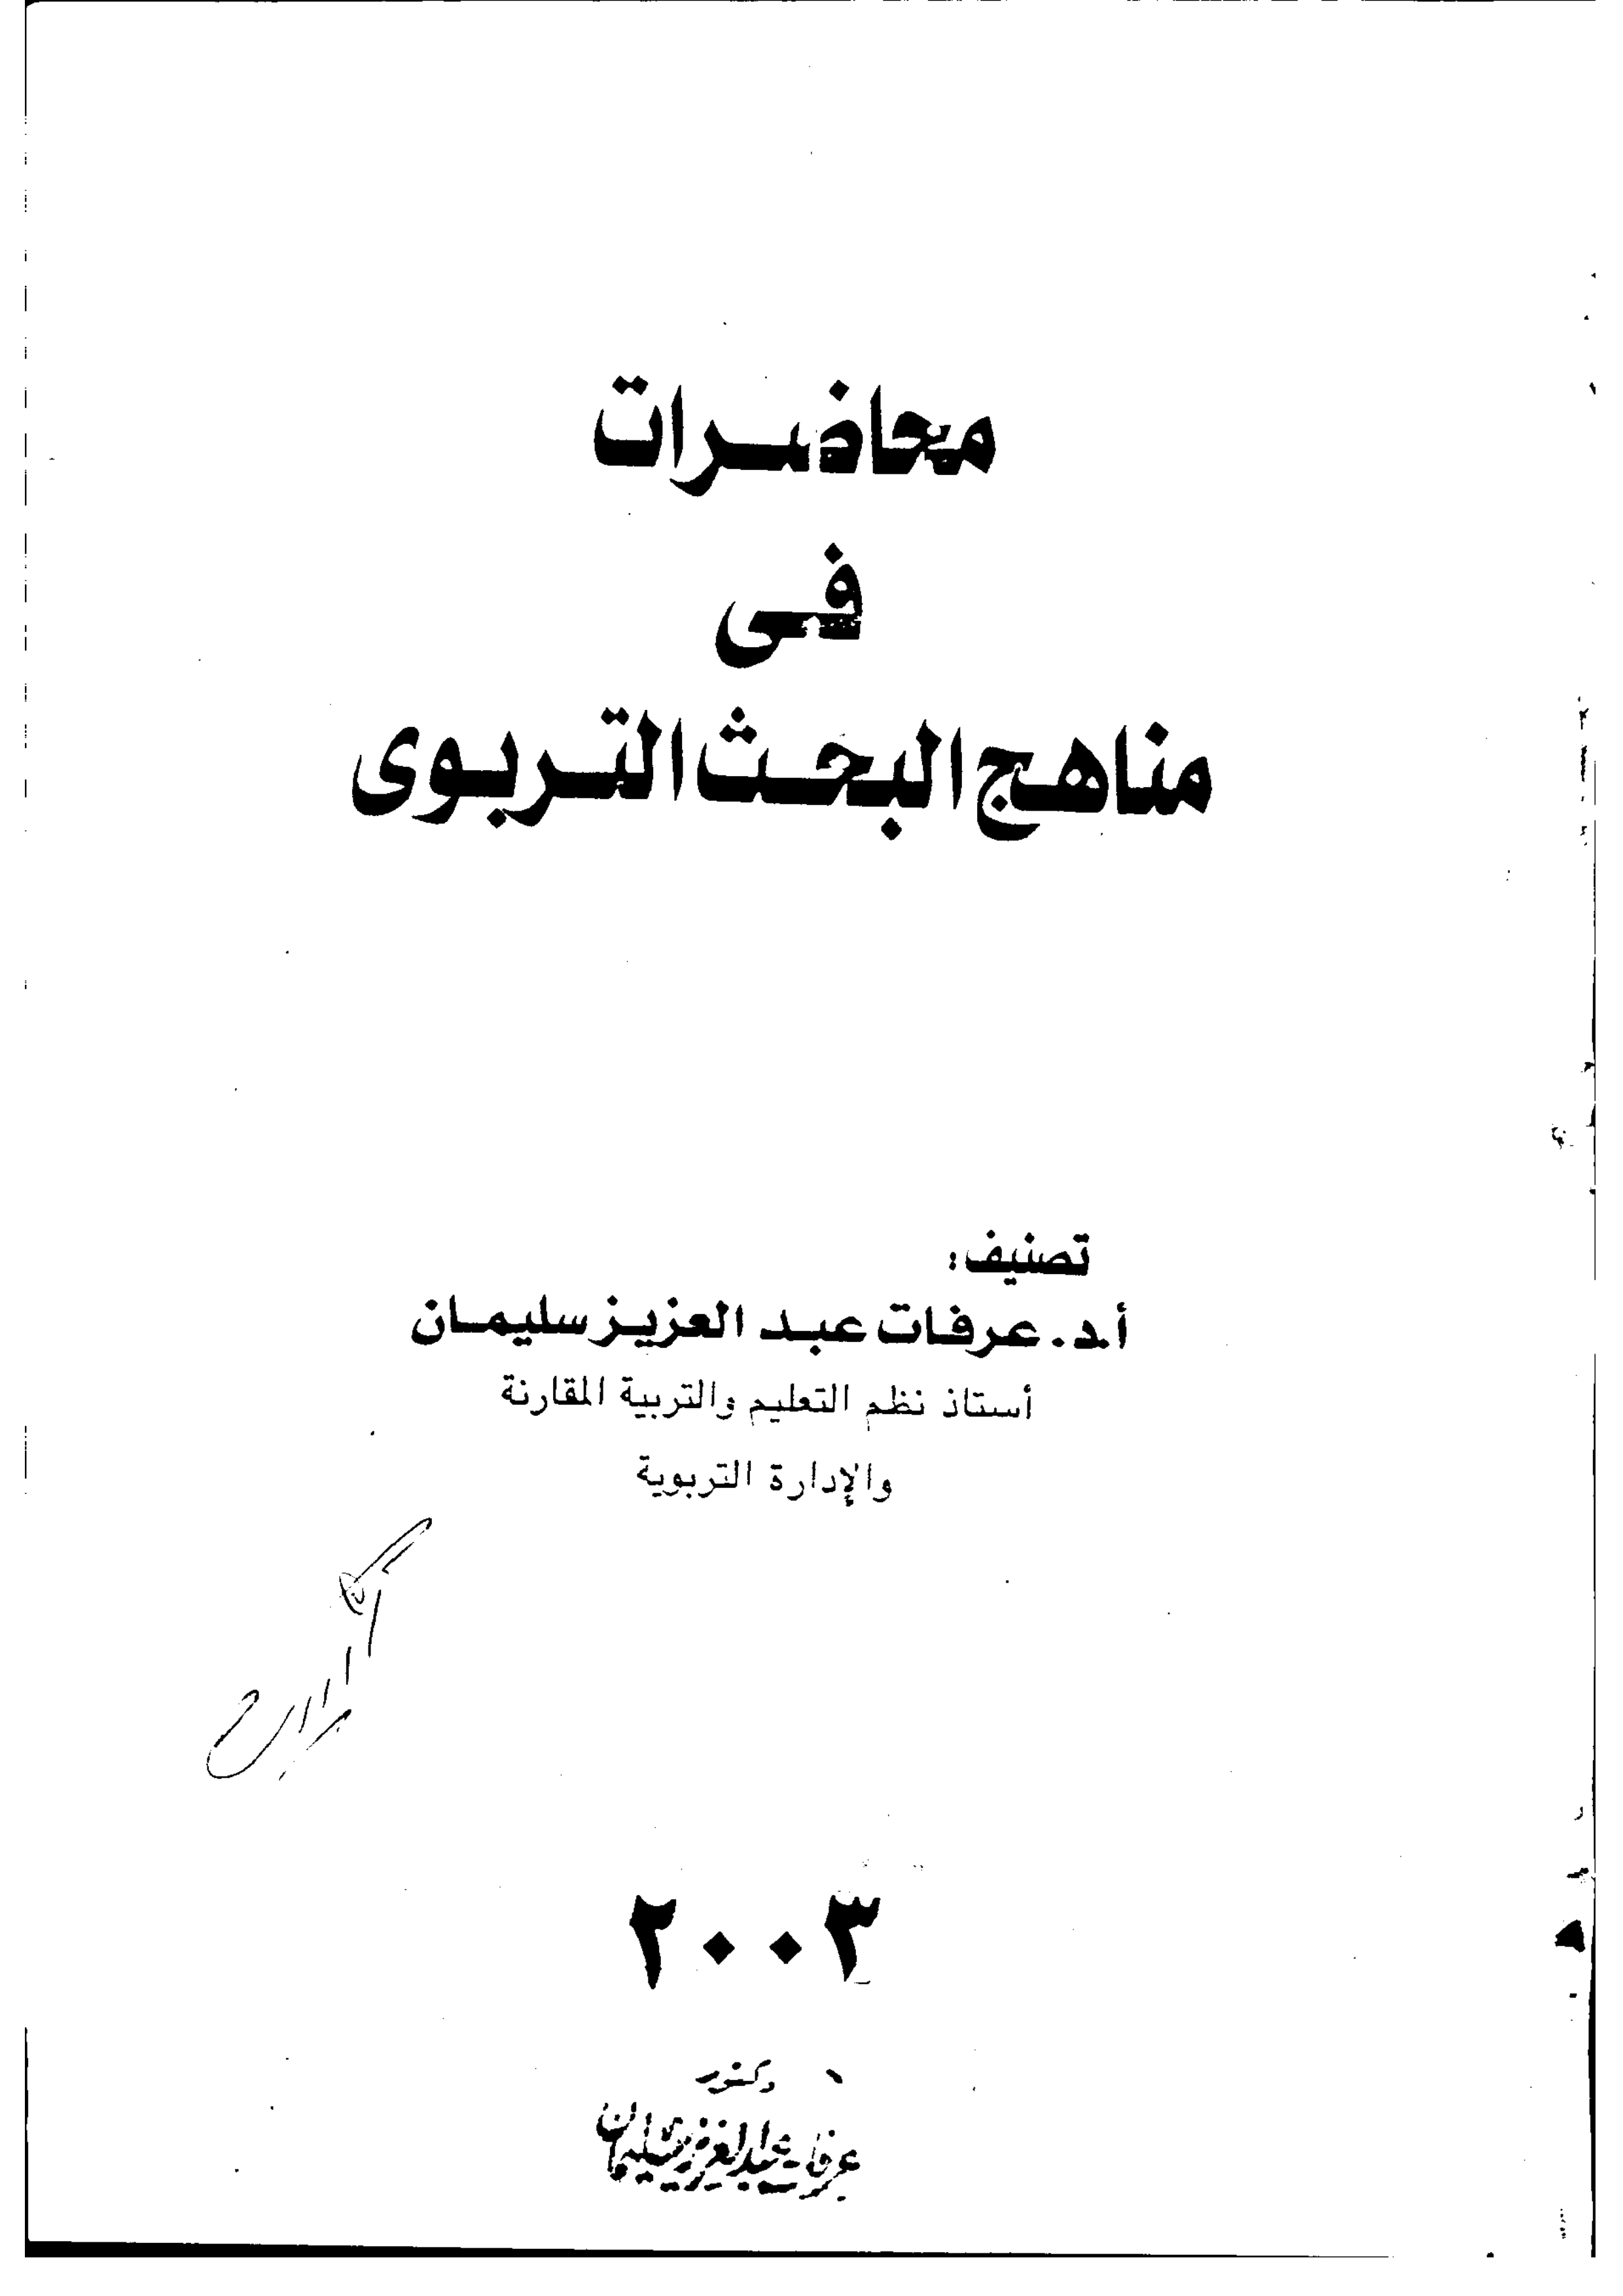 محاضرات
فى
مناهج البحث التربوى
تصنيف:
أ.د. عرفات عبد العزيز سليمان
أستاذ نظم التعليم والتربية المقارنة
والإدارة التربوية
٢٠٠٣
دكتور
عرفات عبد العزيز سليمان